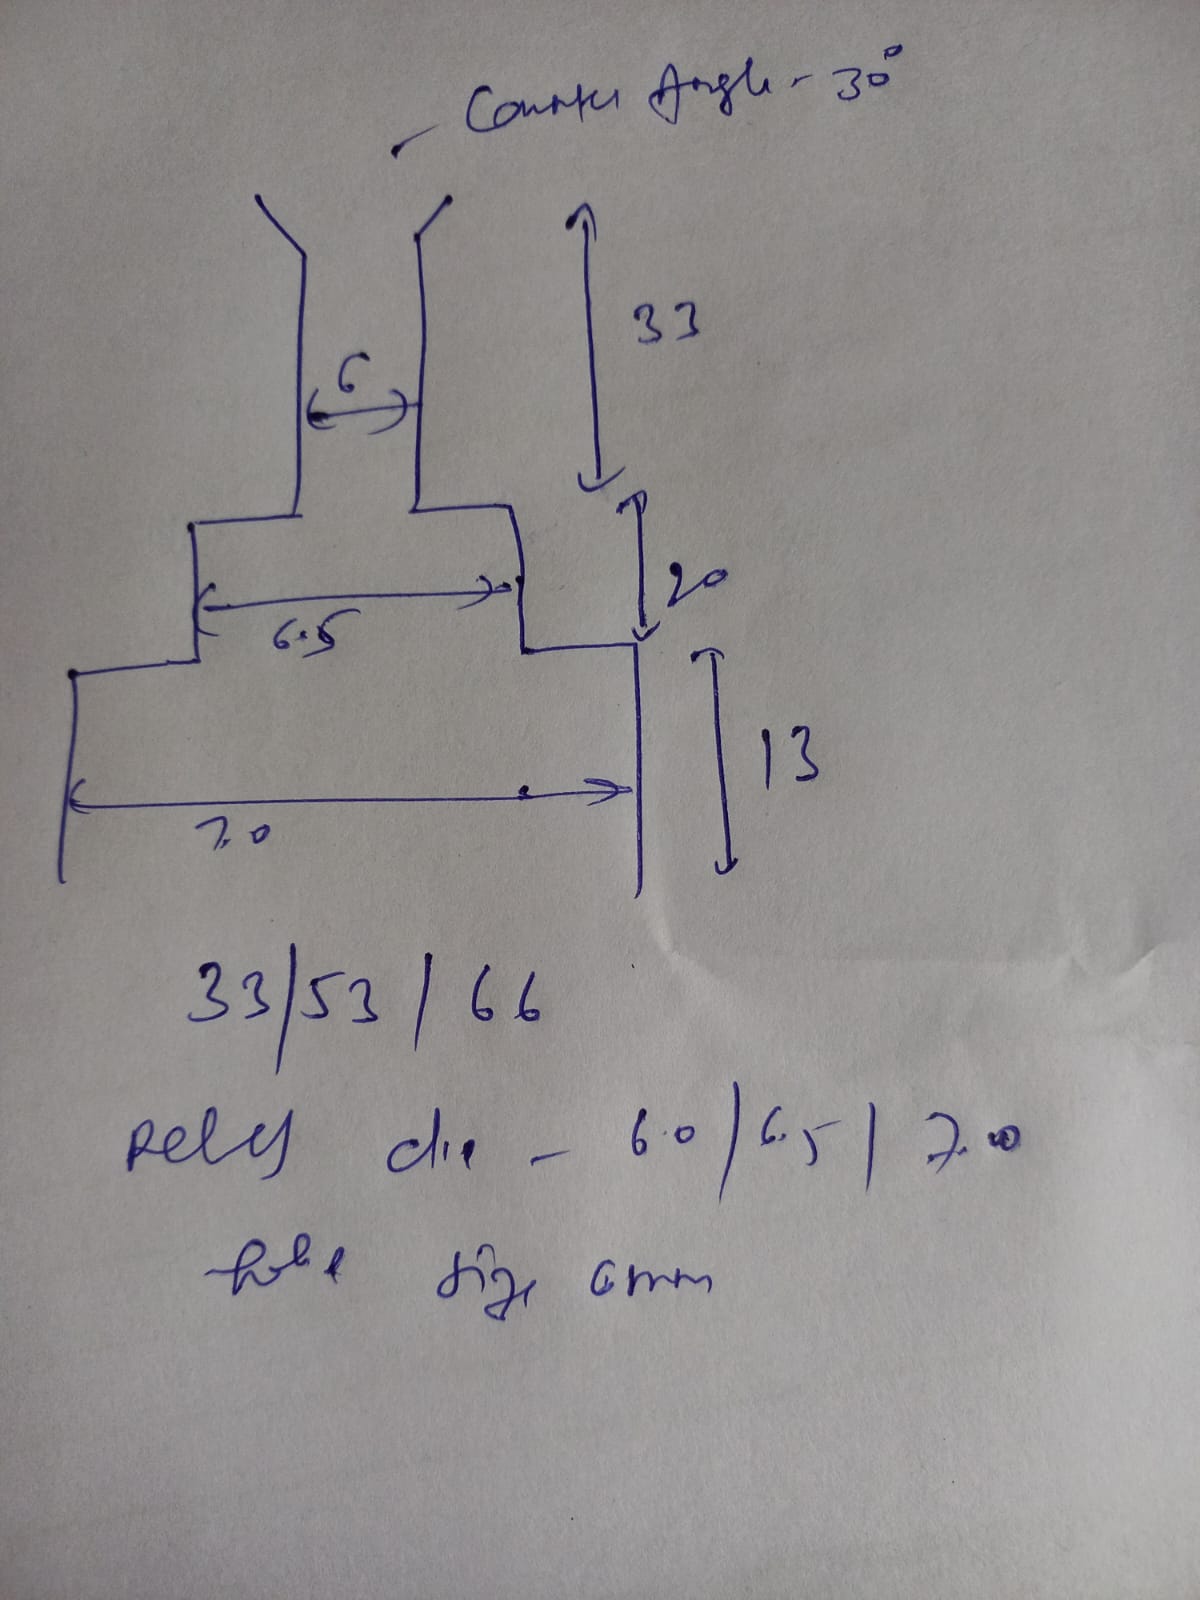 Counter Angle - 30°
33
6
20
6.5
13
7.0
33/53/66
Relif die - 6.0/6.5/7.0
hole size 6mm